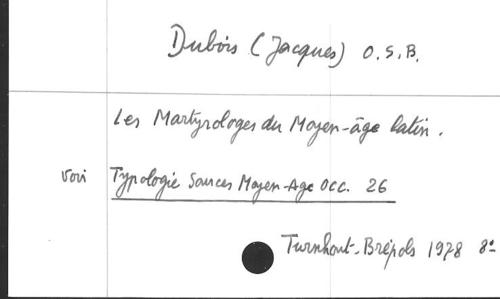 Dubois (Jacques) O.S.B.
Les Martyrologes du Moyen-âge latin.
voir Typologie Sources Moyen-Age Occ. 26
Turnhout-Brépols 1978 8°